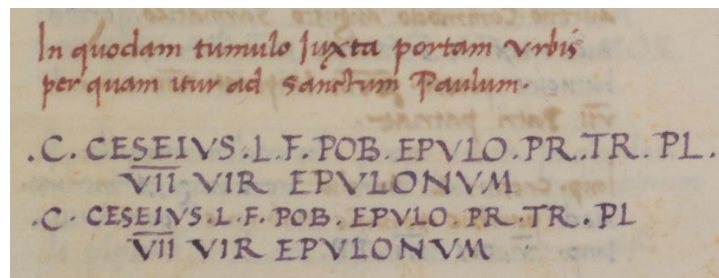 In quodam tumulo Juxta portam Vrbis
per quam itur ad Sanctum Paulum.
.C. CESEIVS.L.F.POB.EPVLO.PR.TR.PL.
V̅I̅I̅ VIR EPVLONVM
.C. CESEIVS.L.F.POB.EPVLO.PR.TR.PL
V̅I̅I̅ VIR EPVLONVM